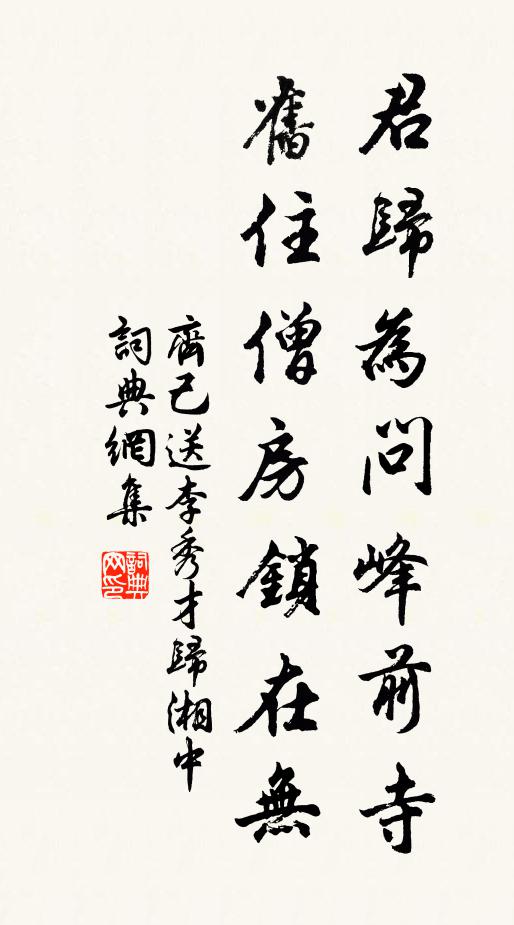 君歸為問峰前寺
舊住僧房鎖在無
齊己送李秀才歸湘中
詞典網集
詞典
网印